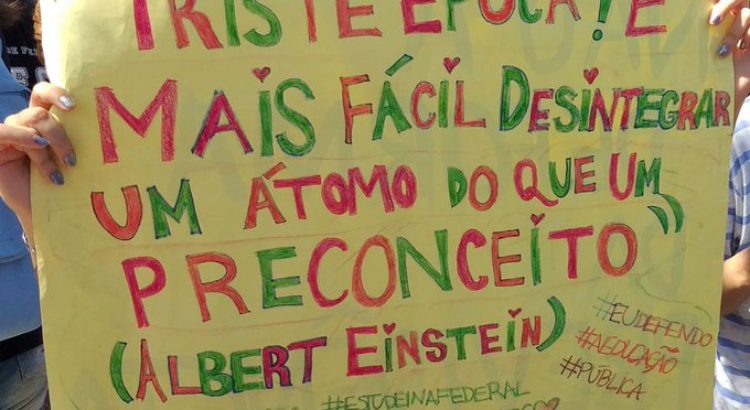 TRISTE ÉPOCA! É
MAIS FÁCIL DESINTEGRAR
UM ÁTOMO DO QUE UM
PRECONCEITO"
(ALBERT EINSTEIN)
#EUDEFENDO
#AEDUCAÇÃO
#PÚBLICA
#ESTUDEINAFEDERAL